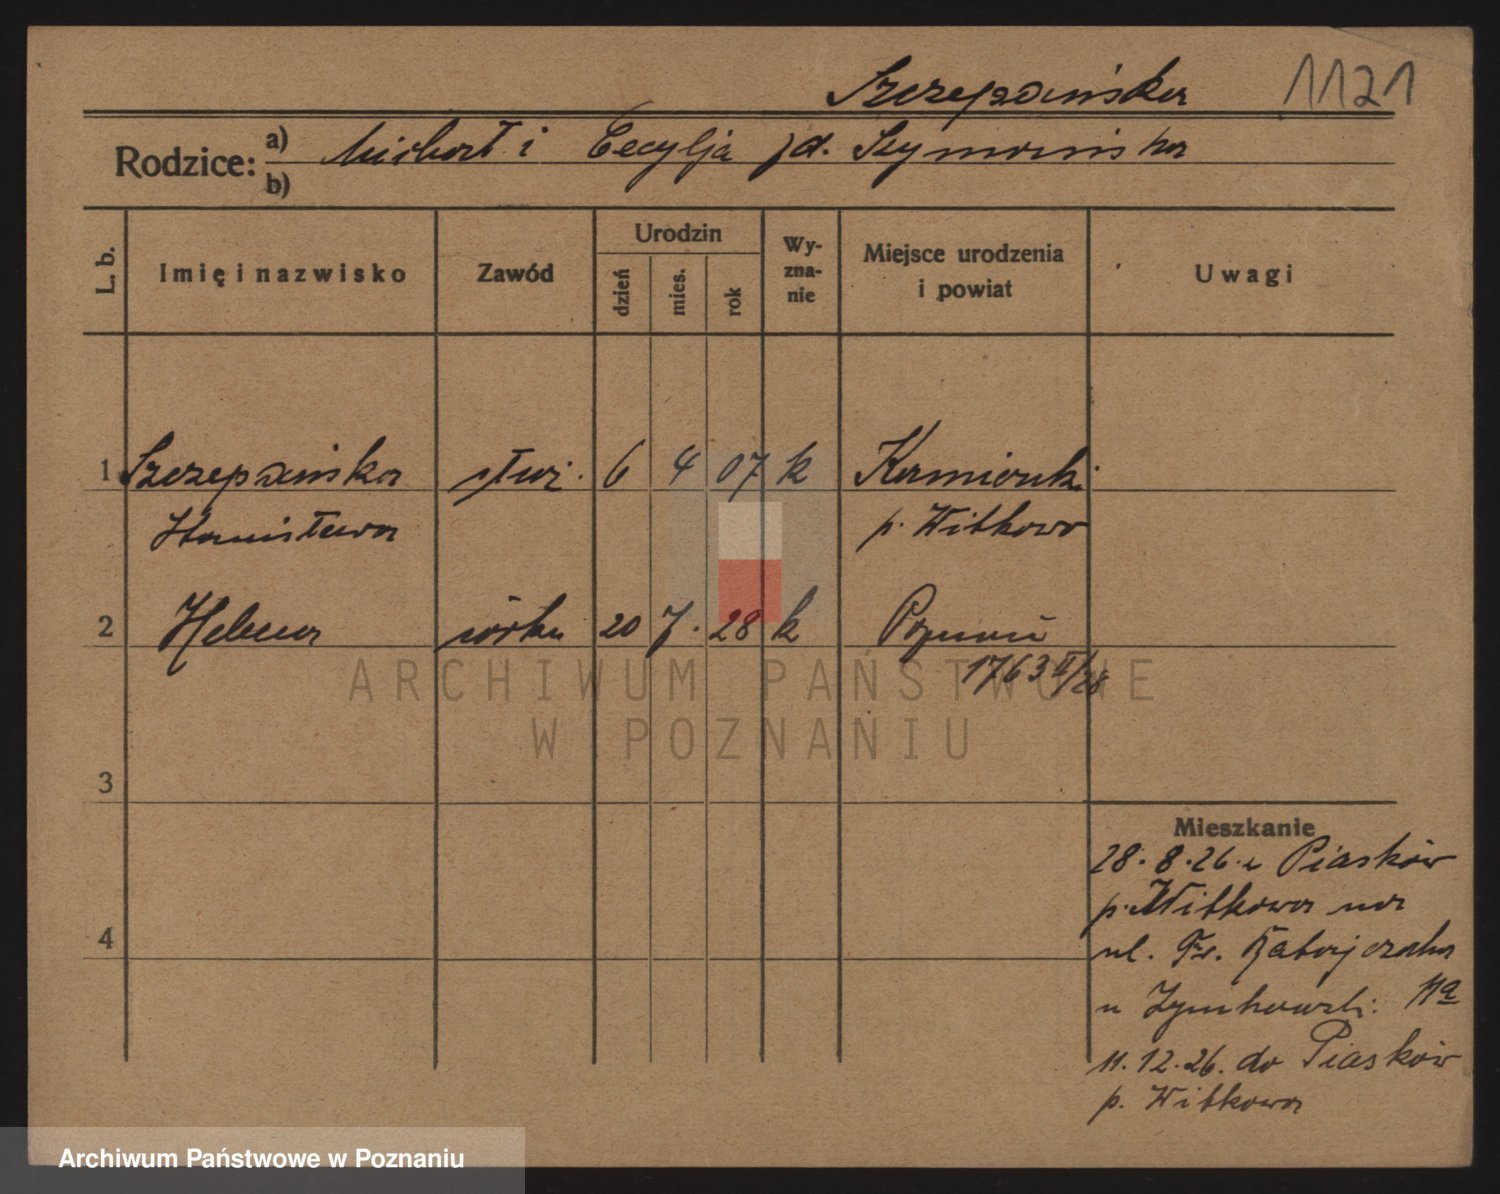 Szczepańska 1121
Rodzice: a) Michał i Cecylja d. Szymańska
b)
L. b. Imię i nazwisko Zawód Urodzin dzień mies. rok Wy-zna-nie Miejsce urodzenia i powiat Uwagi
1 Szczepańska służ. 6 4 07 k Kamionki
Stanisława p. Witkowo
2 Helena córka 20 7. 28 k Poznań
1763 II/28
3
Mieszkanie
28.8.26 z Piasków
p. Witkowo na
4
ul. Fr. Ratajczaka
u 11a
11.12.26. do Piasków
p. Witkowo
ARCHIWUM PAŃSTWOWE
W POZNANIU
Archiwum Państwowe w Poznaniu